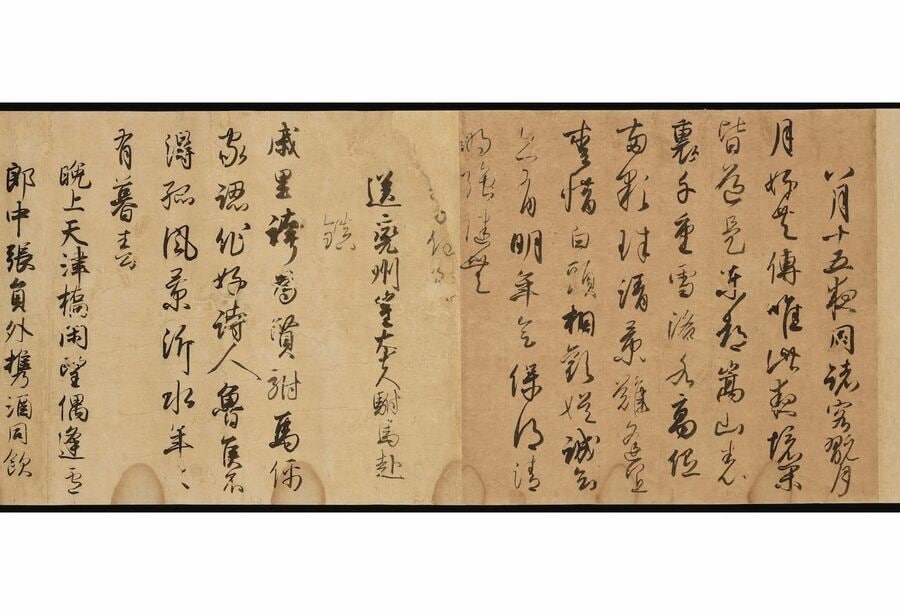 八月十五夜同諸客翫月
月好共傳唯此夜境閑
皆道是東都嵩山表
裏千重雪洛水高低
兩顆珠清景難逢宜
愛惜白頭相歡娯誠知
亦有明年會保得清
明強健無
送兗州崔大夫駙馬赴
鎮
戚里誇為賢駙馬儒
家認作好詩人魯侯不
得孤風景沂水年々
有暮春
晩上天津橋閑望偶逢盧
郎中張員外攜酒同飲